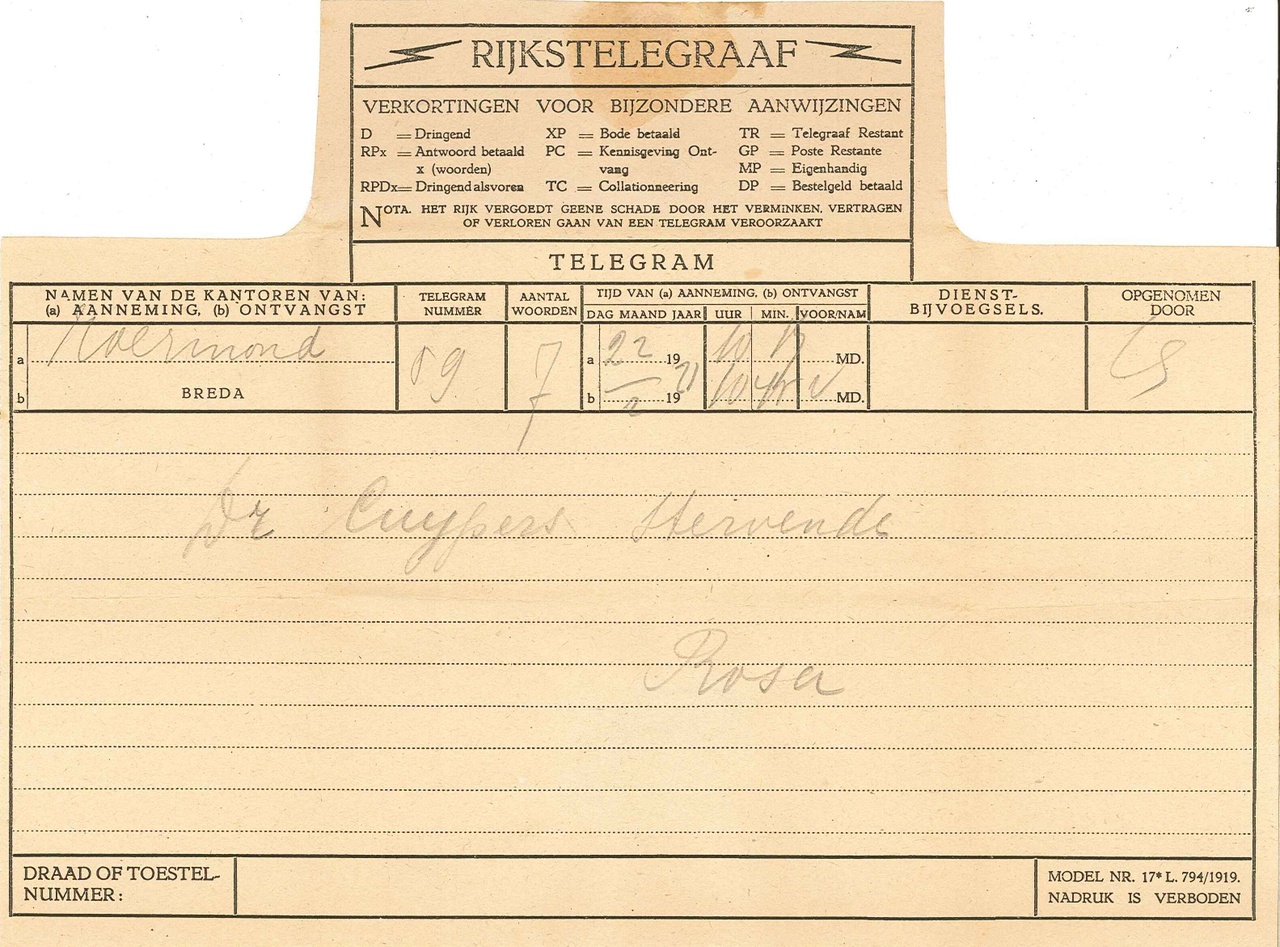 RIJKSTELEGRAAF
VERKORTINGEN VOOR BIJZONDERE AANWIJZINGEN
D = Dringend XP = Bode betaald TR = Telegraaf Restant
RPx = Antwoord betaald PC = Kennisgeving Ont- GP = Poste Restante
x (woorden) vang MP = Eigenhandig
RPDx = Dringend alsvoren TC = Collationneering DP = Bestelgeld betaald
NOTA. HET RIJK VERGOEDT GEENE SCHADE DOOR HET VERMINKEN, VERTRAGEN
OF VERLOREN GAAN VAN EEN TELEGRAM VEROORZAAKT
TELEGRAM
NAMEN VAN DE KANTOREN VAN: TELEGRAM AANTAL TIJD VAN (a) AANNEMING, (b) ONTVANGST DIENST- OPGENOMEN
(a) AANNEMING, (b) ONTVANGST NUMMER WOORDEN DAG MAAND JAAR UUR MIN. VOOR/NAM BIJVOEGSELS. DOOR
a Roermond 59 7 a 22 19 10 MD.
b BREDA b 2 19 21 10 v MD.
Dr Cuypers Stervende
Rosa
DRAAD OF TOESTEL-
NUMMER:
MODEL NR. 17* L. 794/1919.
NADRUK IS VERBODEN